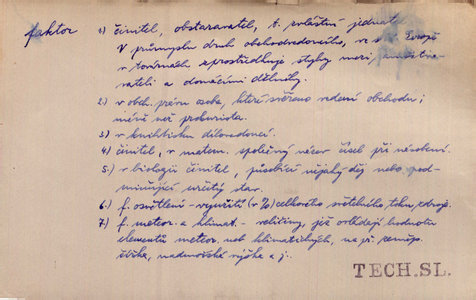 faktor 1) činitel, obstaravatel, t. zvláštní jednat
V průmyslu druh obchodvedoucího, ve s. v. Evropě
v továrnách zprostředkuje styky mezi zaměstna-
vateli a domácími dělníky.
2.) v obch. právu osoba, které svěřeno vedení obchodu;
méně než prokurista.
3) v knihtisku dílovedoucí.
4) činitel, v matem. společný název čísel při násobení.
5.) v biologii činitel, působící nějaký děj nebo pod-
miňující určitý stav.
6.) f. osvětlení - využití (v %) celkového světelného toku zdroje.
7) f. meteor. a klimat. - veličiny, jež ovládají hodnotu
elementů meteor. neb klimatických, na př. zeměp.
šířka, nadmořská výška a j.
TECH. SL.